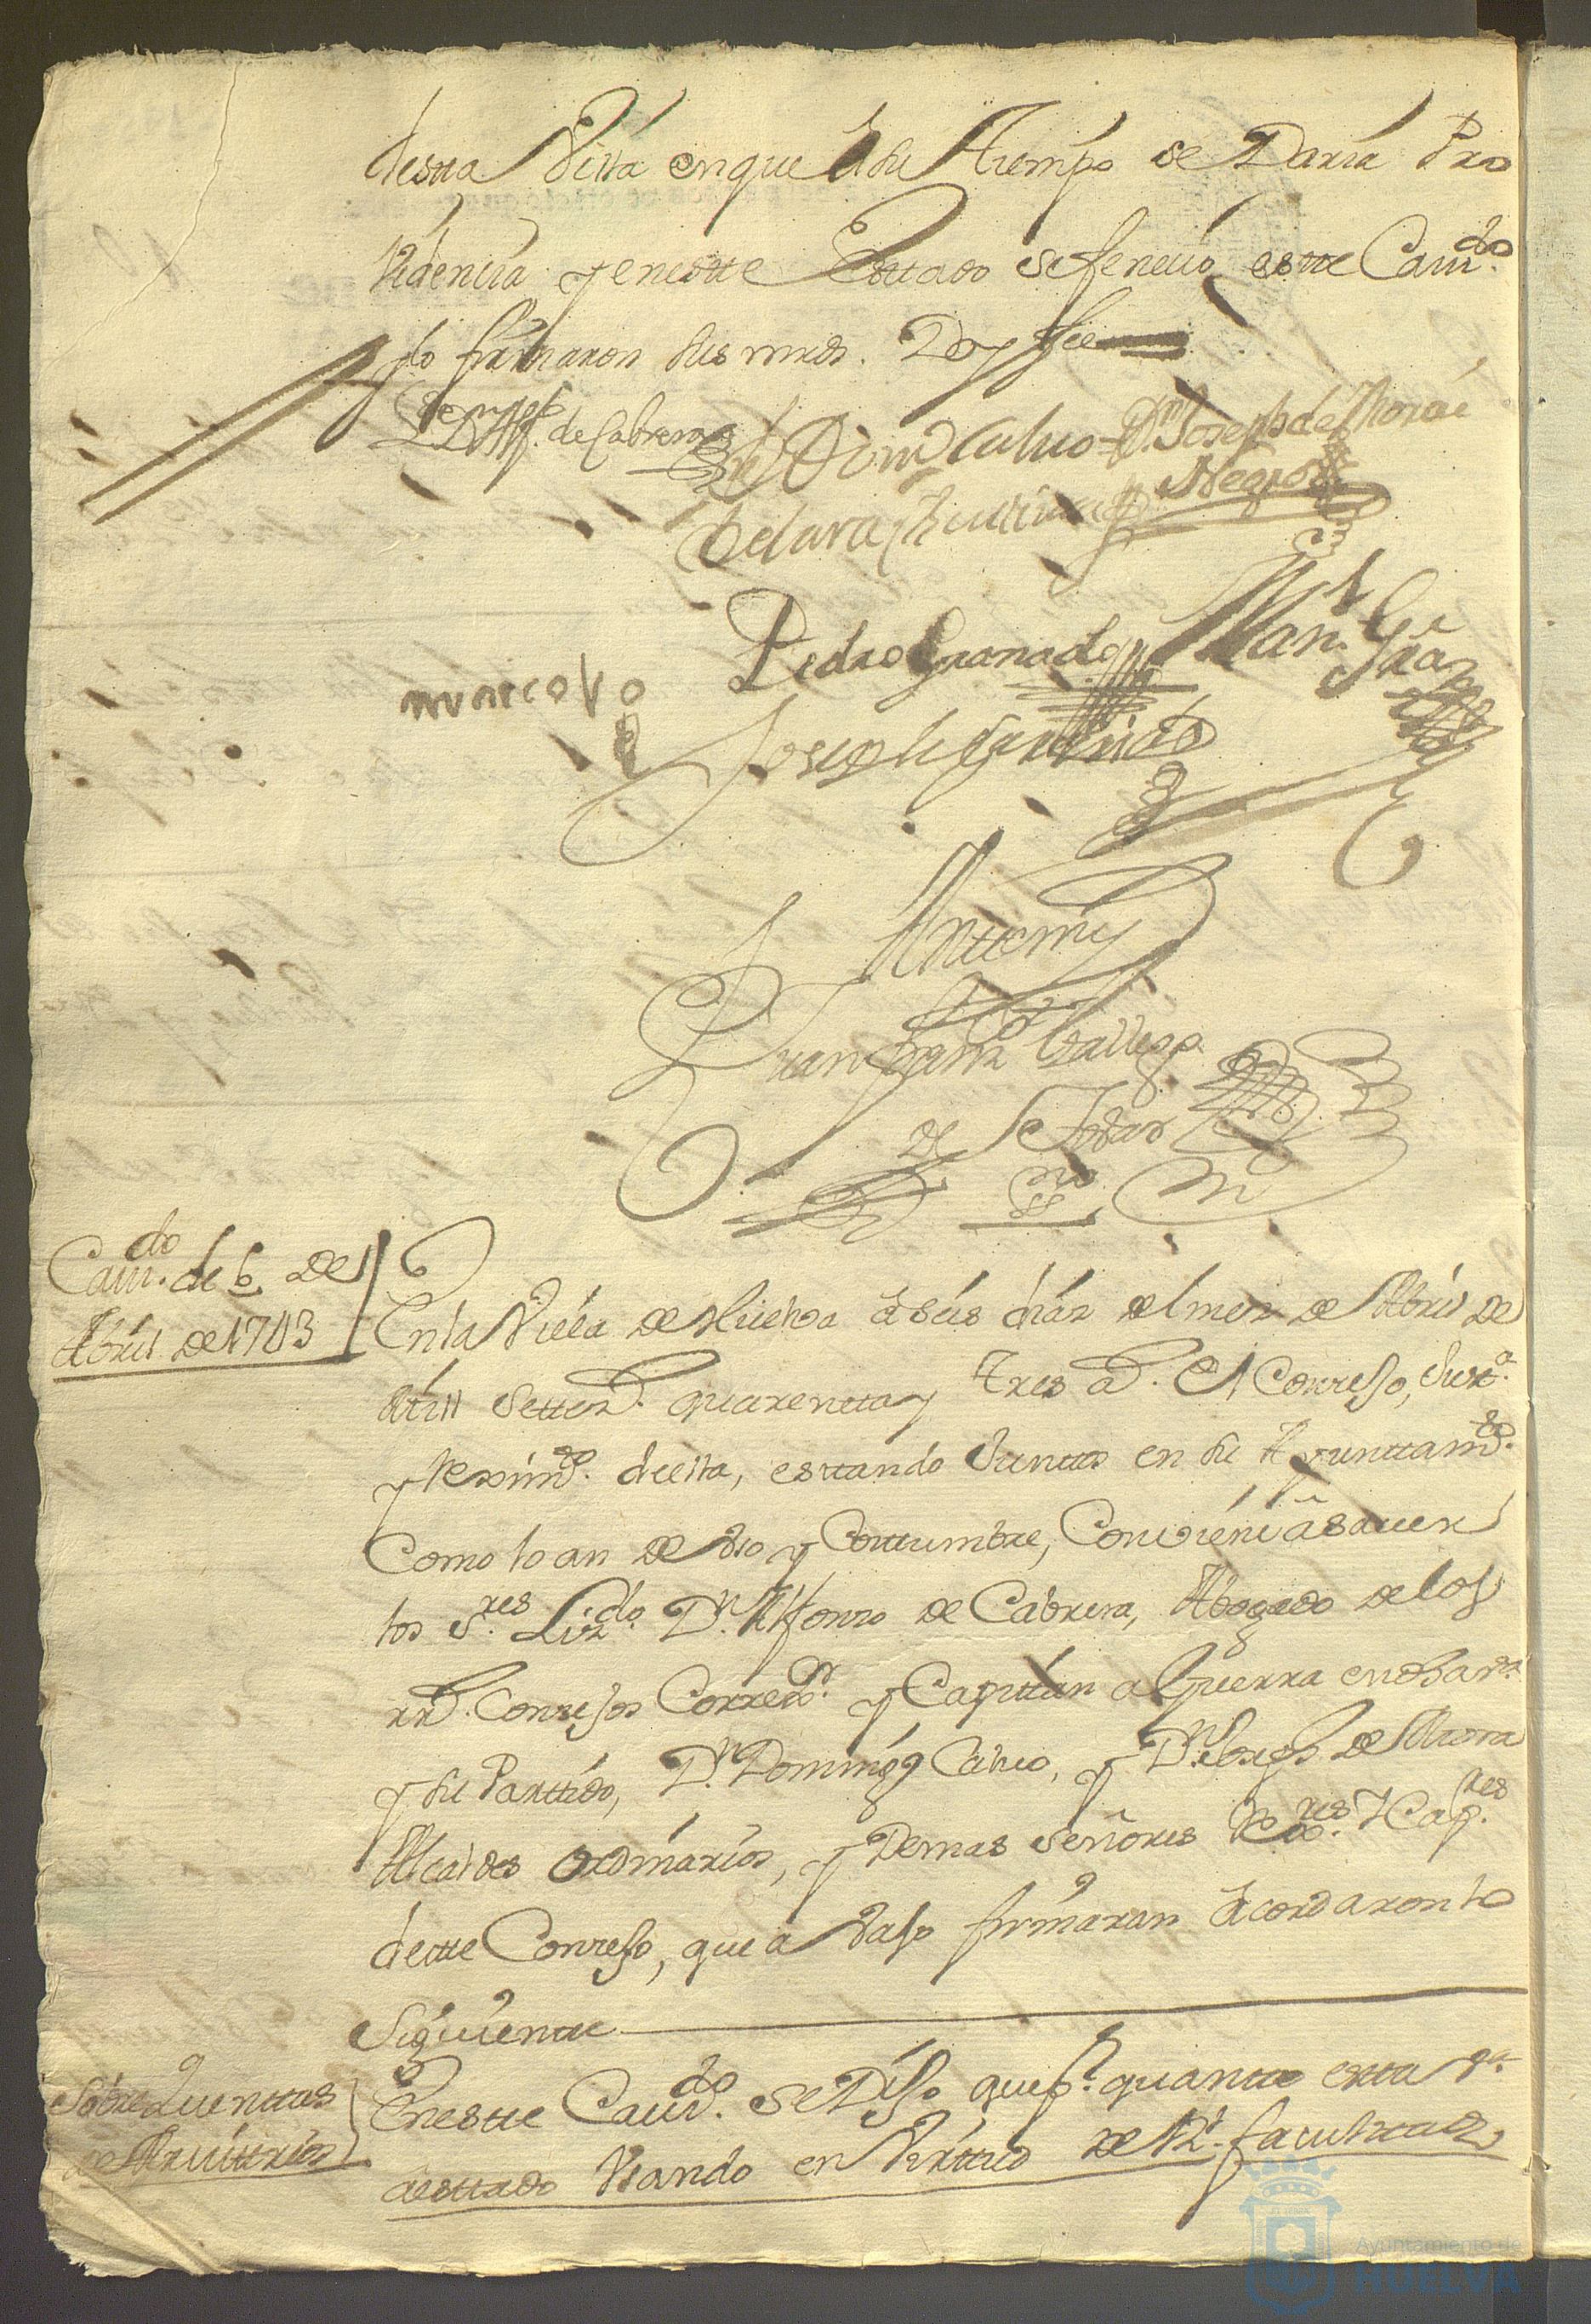 desta Villa en que a su tiempo se Daria Pro
videncia y en este Estado se fenecio este Cauᵈᵒ.
y lo firmaron sus mrds. Doy fee
Lizᵈᵒ Dⁿ Alfᵒ. de Cabrera
Dⁿ Domᵒ Calvo
Dⁿ Joseph de Mora
Negro
de la ra
Pedro Granado
Manˡ Grã
Joseph
Antte my
Juan Franᶜᵒ Gallegos
de Tobar
Cauᵈᵒ. de 6 de
Abril de 1743
En la Villa de Huelva a seis dias del mes de Abril de
mill settezˢ. quarenta y tres aˢ. El Conzejo, Justᵃ.
y Reximᵗᵒ. de ella, estando Juntos en su Ayunttamᵗᵒ.
Como lo an de Uso y Costtumbre, Combiene â sauer
los Sʳᵉˢ. Lizᵈᵒ. Dⁿ. Alfonso de Cabrera, Abogado de los
rrˢ. Consejos Corregᵒʳ. y Capittan a Guerra en ella
y su Parttido, Dⁿ. Domingo Calvo, y Dⁿ. Joseph de Mora
Alcaldes ordinarios, y Demas Señores Rexʳᵉˢ. y Capʳᵉˢ
de este Conzejo, que a Vajo firmaran Acordaron lo
Siguiente
Sobre Quenttas
de Arvittrios
En este Cauᵈᵒ. se Dijo que pʳ. quanto esta Vᵃ
a esttado Usando en Virttud de Rˡ. facultad
Ayuntamiento de
HUELVA